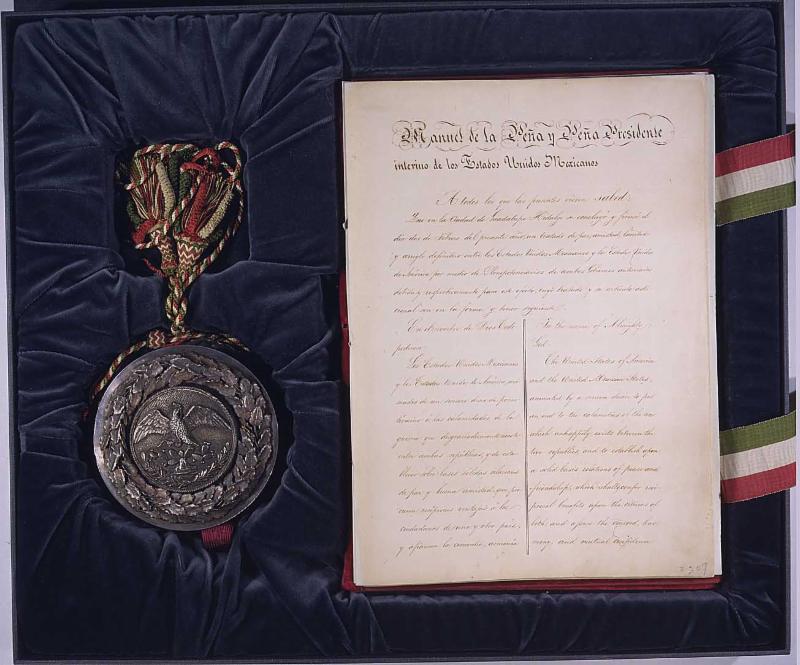 Manuel de la Peña y Peña Presidente
interino de los Estados Unidos Mexicanos
A todos los que las presentes vieren salud:
Que en la Ciudad de Guadalupe Hidalgo se concluyó y firmó el
dia dos de Febrero del presente año, un tratado de paz, amistad, limites
y arreglo definitivo entre los Estados Unidos Mexicanos y los Estados Unidos
de América por medio de Plenipotenciarios de ambos Gobiernos autorizados
debida y respectivamente para este efecto, cuyo tratado y su articulo adi-
cional son en la forma y tenor siguiente.
En el nombre de Dios Todo-
poderoso.
Los Estados Unidos Mexicanos
y los Estados Unidos de América, ani-
mados de un sincero deseo de poner
término á las calamidades de la
guerra que desgraciadamente existe
entre ambas repúblicas, y de esta-
blecer sobre bases sólidas relaciones
de paz y buena amistad, que pro-
curen reciprocas ventajas á los
ciudadanos de uno y otro pais,
y afiancen la concordia, armonia
In the name of Almighty
God.
The United States of America
and the United Mexican States,
animated by a sincere desire to put
an end to the calamities of the war
which unhappily exists between the
two republics, and to establish upon
a solid basis relations of peace and
friendship, which shall confer reci-
procal benefits upon the citizens of
both, and assure the concord, har-
mony, and mutual confidence